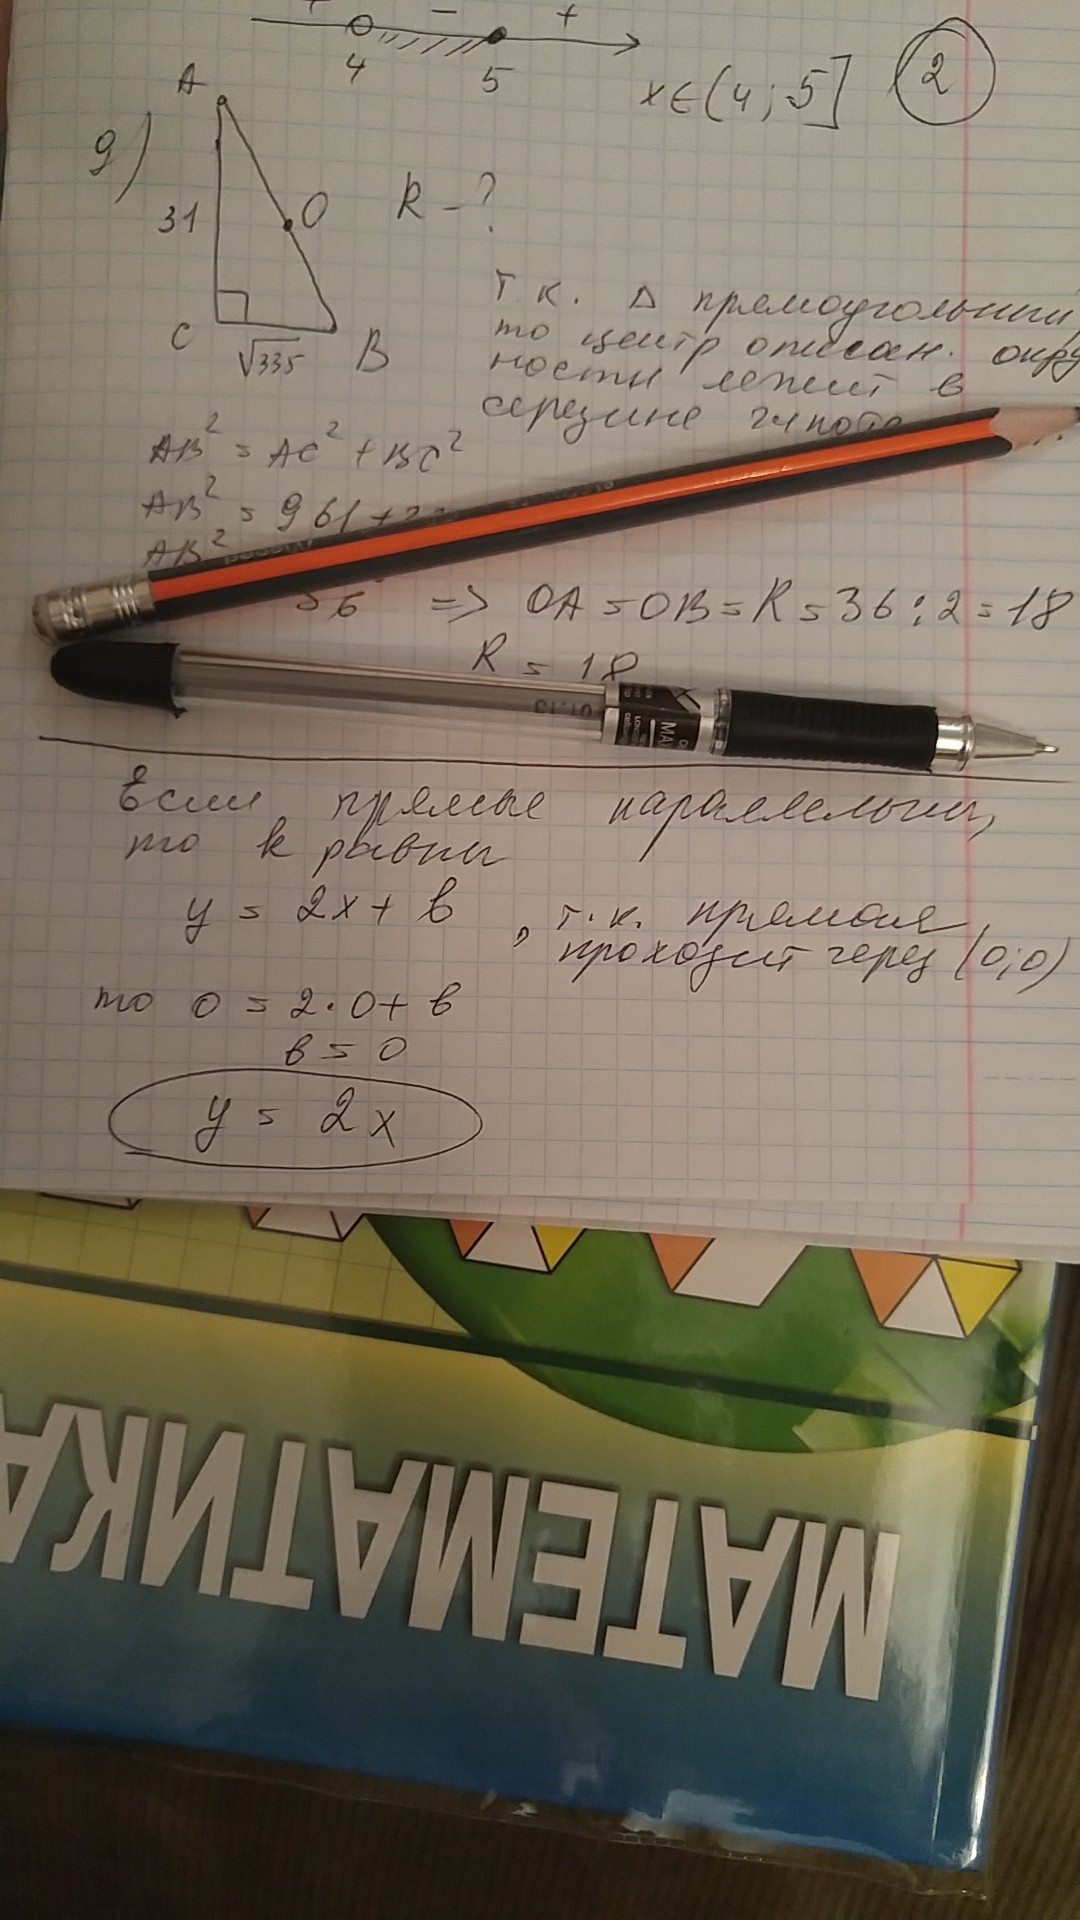 + - +
4 5
x∈(4;5] 2
A
9)
31
O
R - ?
C
√335
B
т.к. △ прямоугольный,
то центр описан. окру
ности лежит в
середине гипоте
AB² = AC² + BC²
AB² = 961 +
AB²
36 => OA = OB = R = 36 : 2 = 18
R = 18
Если прямые параллельны,
то k равны
y = 2x + b , т.к. прямая
проходит через (0;0)
то 0 = 2·0 + b
b = 0
y = 2x
МАТЕМАТИКА